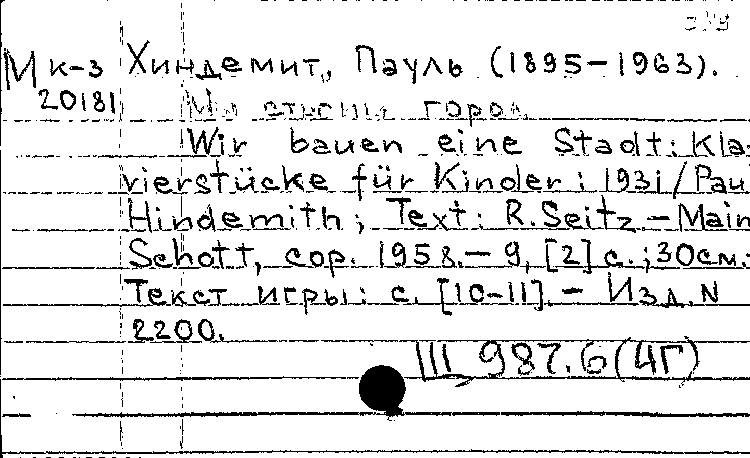 Мк-з Хиндемит, Пауль (1895-1963).
20181 Мы строим город
Wir bauen eine Stadt: Kla-
vierstücke für Kinder: 1931/Pau
Hindemith; Text: R. Seitz.-Main
Schott, cop. 1958.- 9, [2] с.; 30см.-
Текст игры: с. [10-11].- Изд. N
2200.
Щ 987.6(4Г)